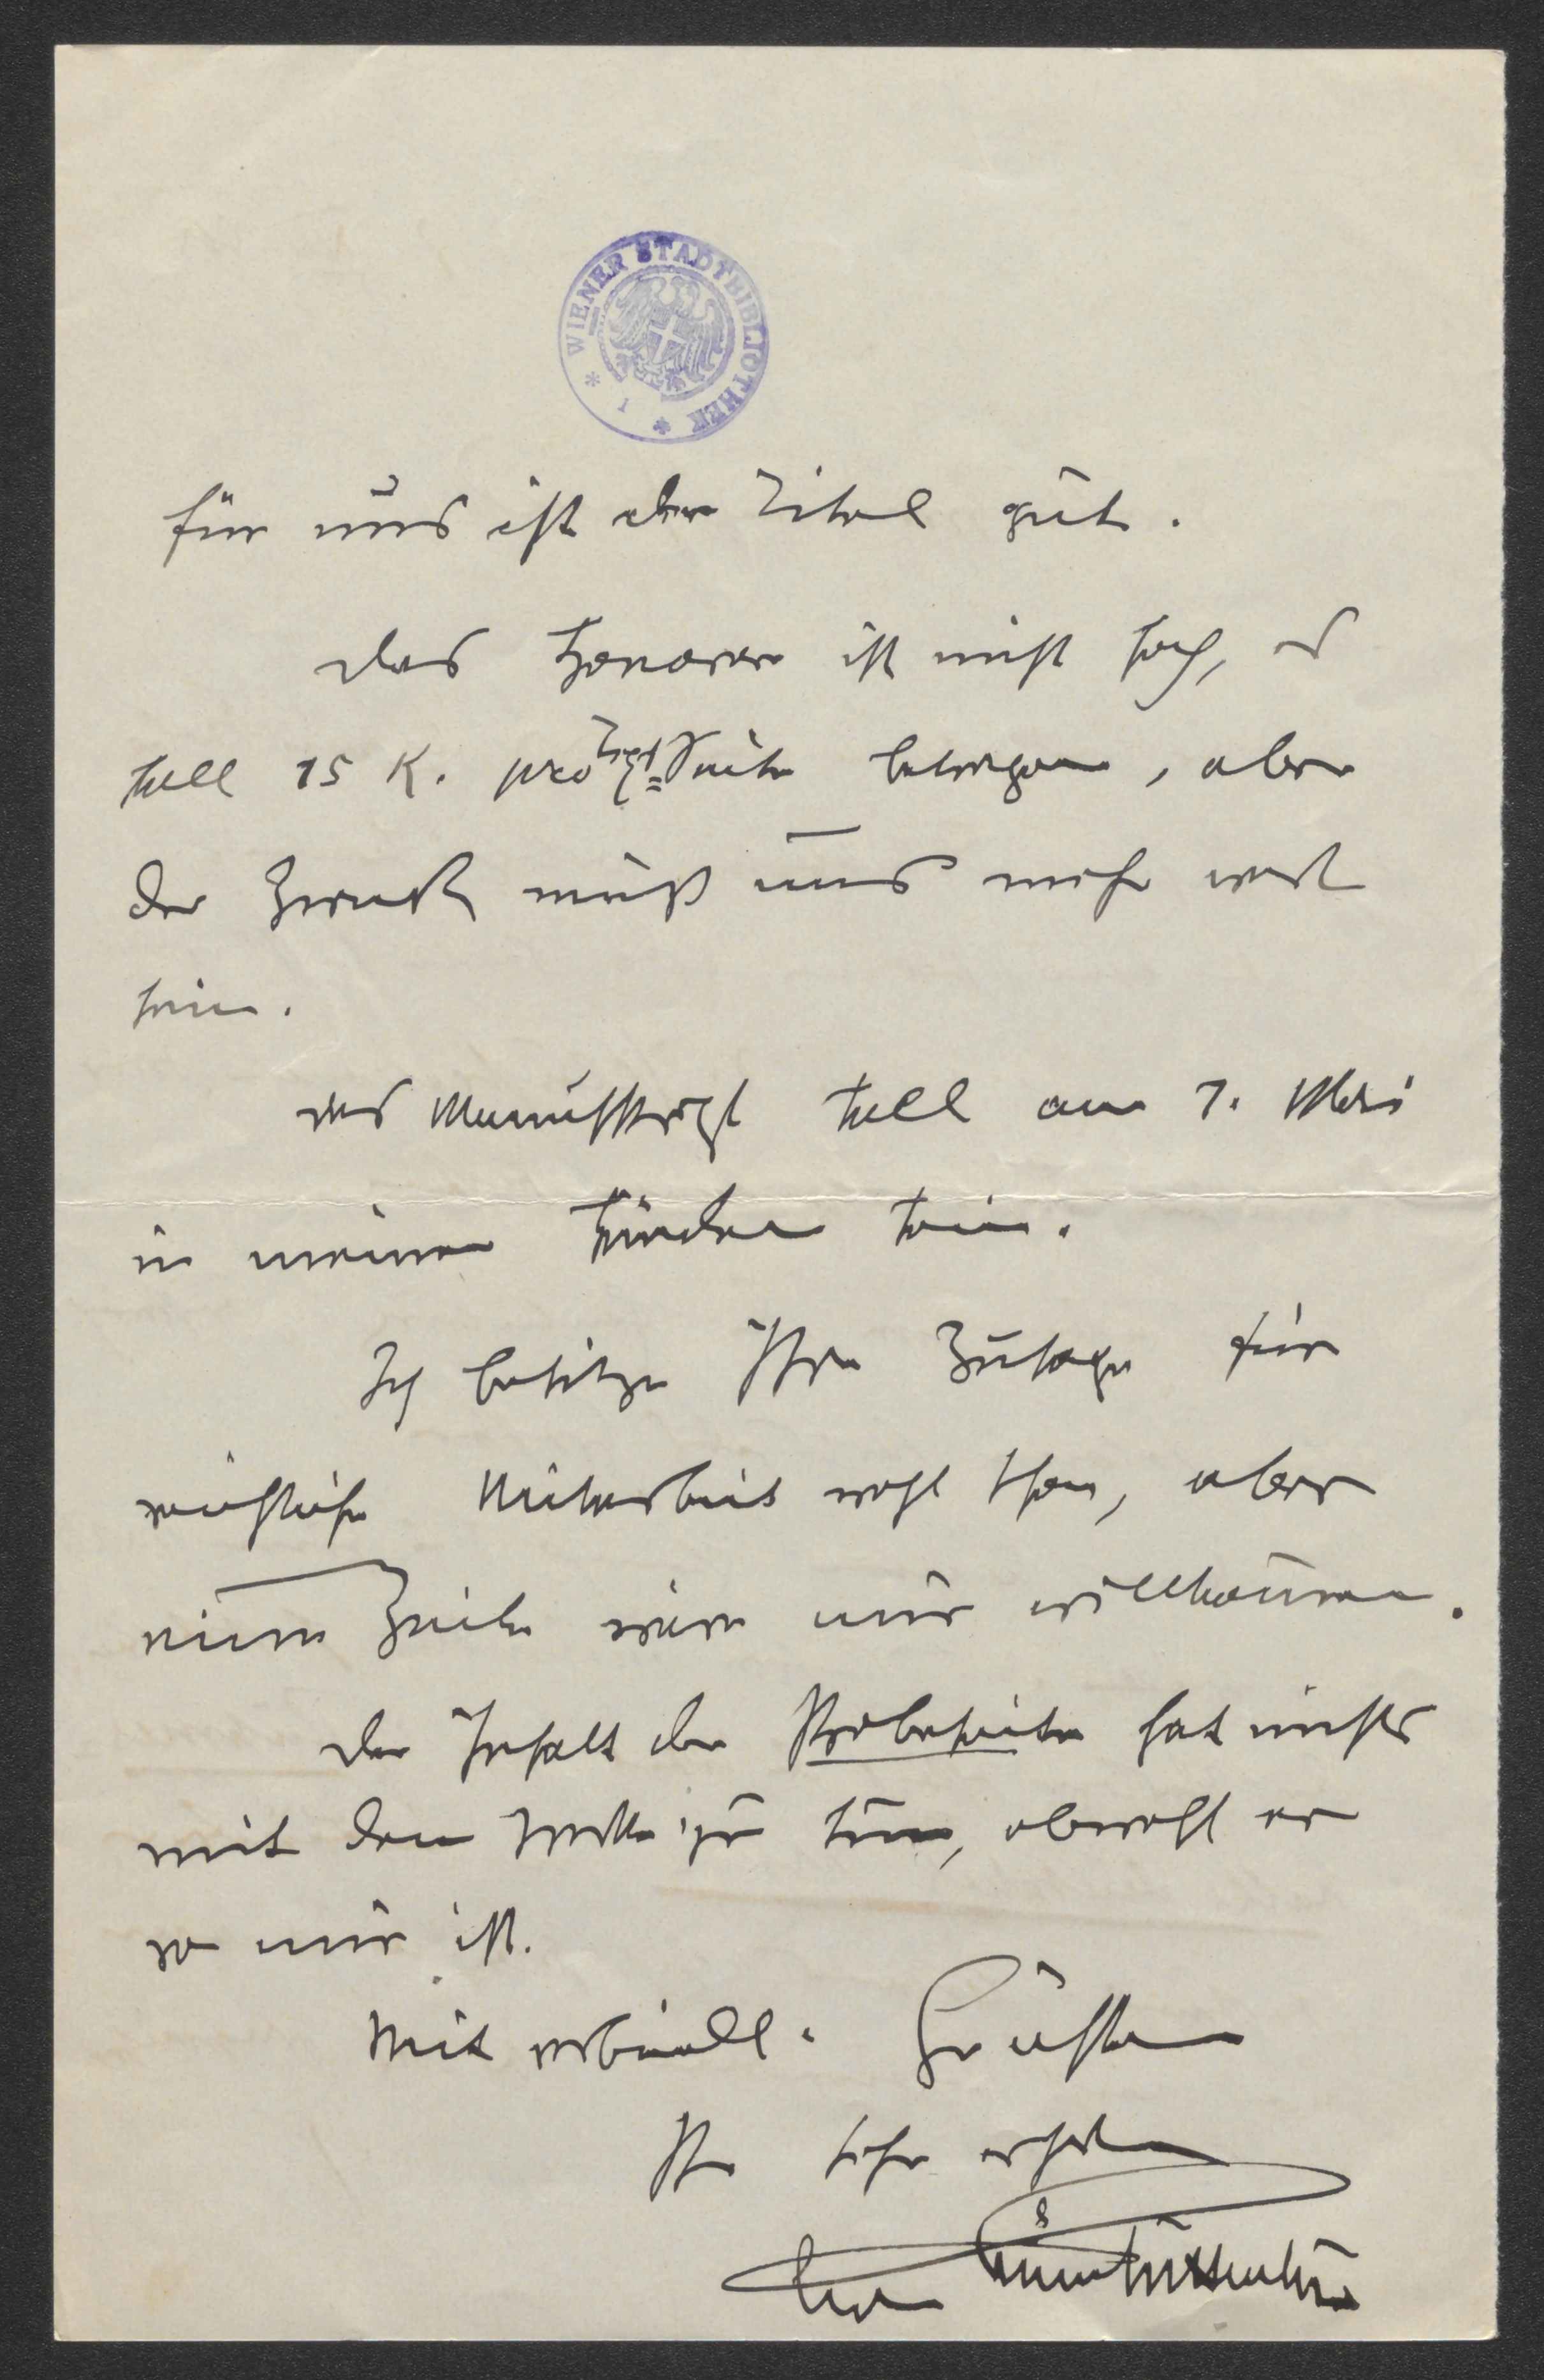 WIENER STADTBIBLIOTHEK
1
für uns ist der Titel gut.
Das Honorar ist nicht hoch, es
soll 15 K. pro Seite betragen, aber
der Zweck muß uns mehr wert
sein.
Das Manuskript soll am 1. Mai
in meinen Händen sein.
Ich besitze Ihre Zusage für
reichliche Mitarbeit wohl schon, aber
eine Zeile wäre mir willkommen.
Der Inhalt der Probeseite hat nichts
mit dem Werke zu tun, obwohl er
von mir ist.
Mit verbindl. Grüßen
Ihr sehr ergeb.